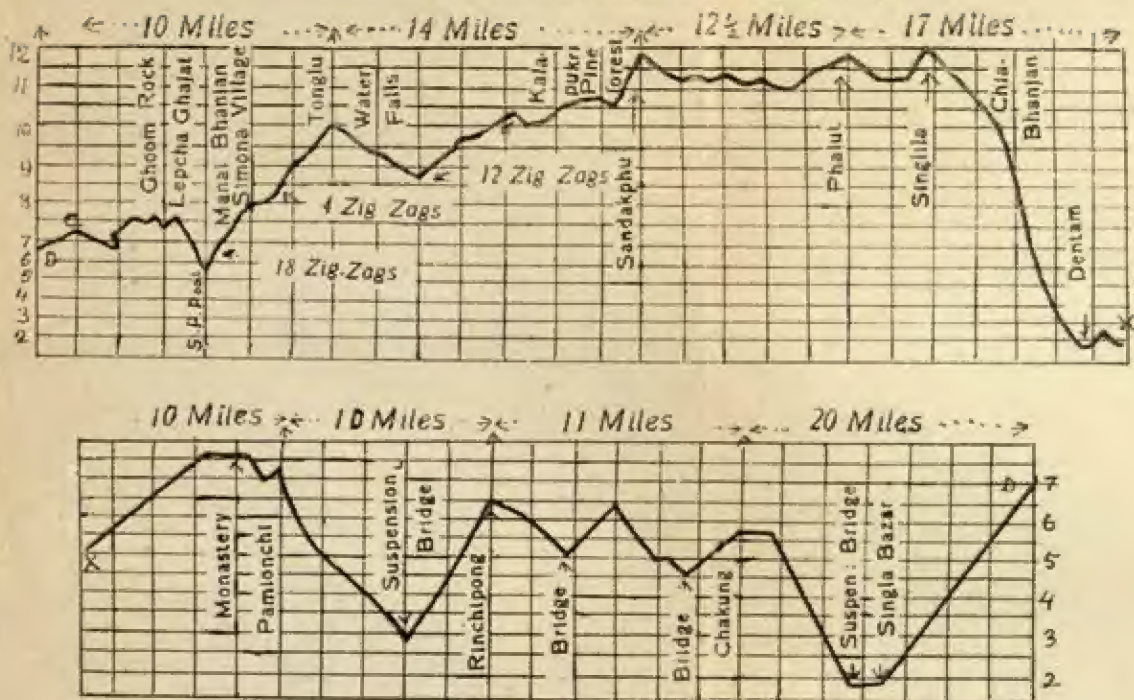 10 Miles
14 Miles
12½ Miles
17 Miles
12
11
10
9
8
7
6
5
4
3
2
G
D
Ghoom Rock
Lepcha Ghajat
S.P.Post
Manai Bhanian
Simona Village
Tonglu
Water
Falls
Kala-
pukri
Pine
forest
Sandakphu
Phalul
Singlila
Chia-
Bhanjan
Dentam
X
18 Zig-Zags
4 Zig Zags
12 Zig Zags
10 Miles
10 Miles
11 Miles
20 Miles
X
Monastery
Pamionchi
Suspension
Bridge
Rinchipong
Bridge
Bridge
Chakung
Suspen: Bridge
Singla Bazar
D
7
6
5
4
3
2